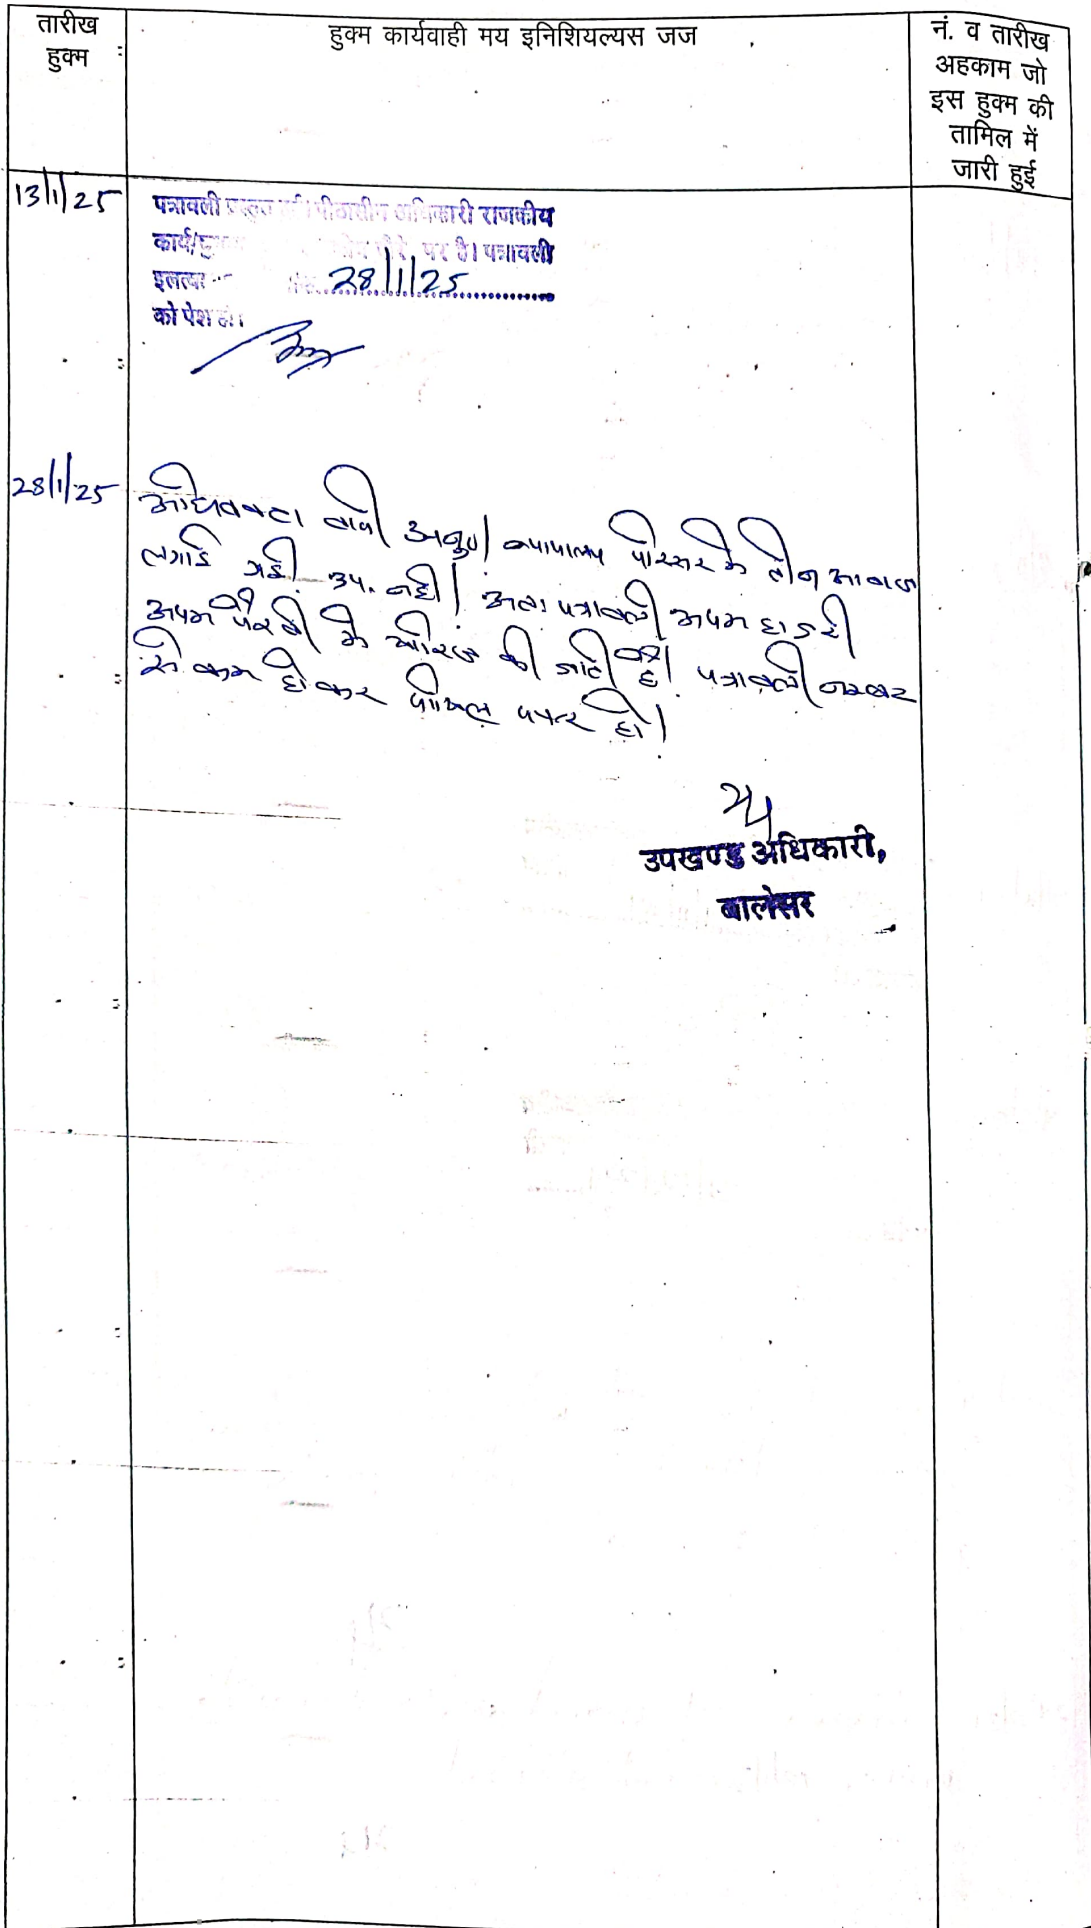 तारीख
हुक्म
हुक्म कार्यवाही मय इनिशियल्यस जज
नं. व तारीख
अहकाम जो
इस हुक्म की
तामिल में
जारी हुई
13/1/25
पत्रावली अधिकारी राजकीय
कार्य/ पर है। पत्रावली
28/1/25
को पेश हो।
28/1/25
अधिवक्ता वादी अनु0। न्यायालय परिसर में तीन आवाज
लगाई गई उप. नहीं। अतः पत्रावली अदम हाजरी
अदम पैरवी में खारिज की जाती है। पत्रावली नम्बर
से कम होकर दाखिल दफ्तर हो।
उपखण्ड अधिकारी,
बालेसर